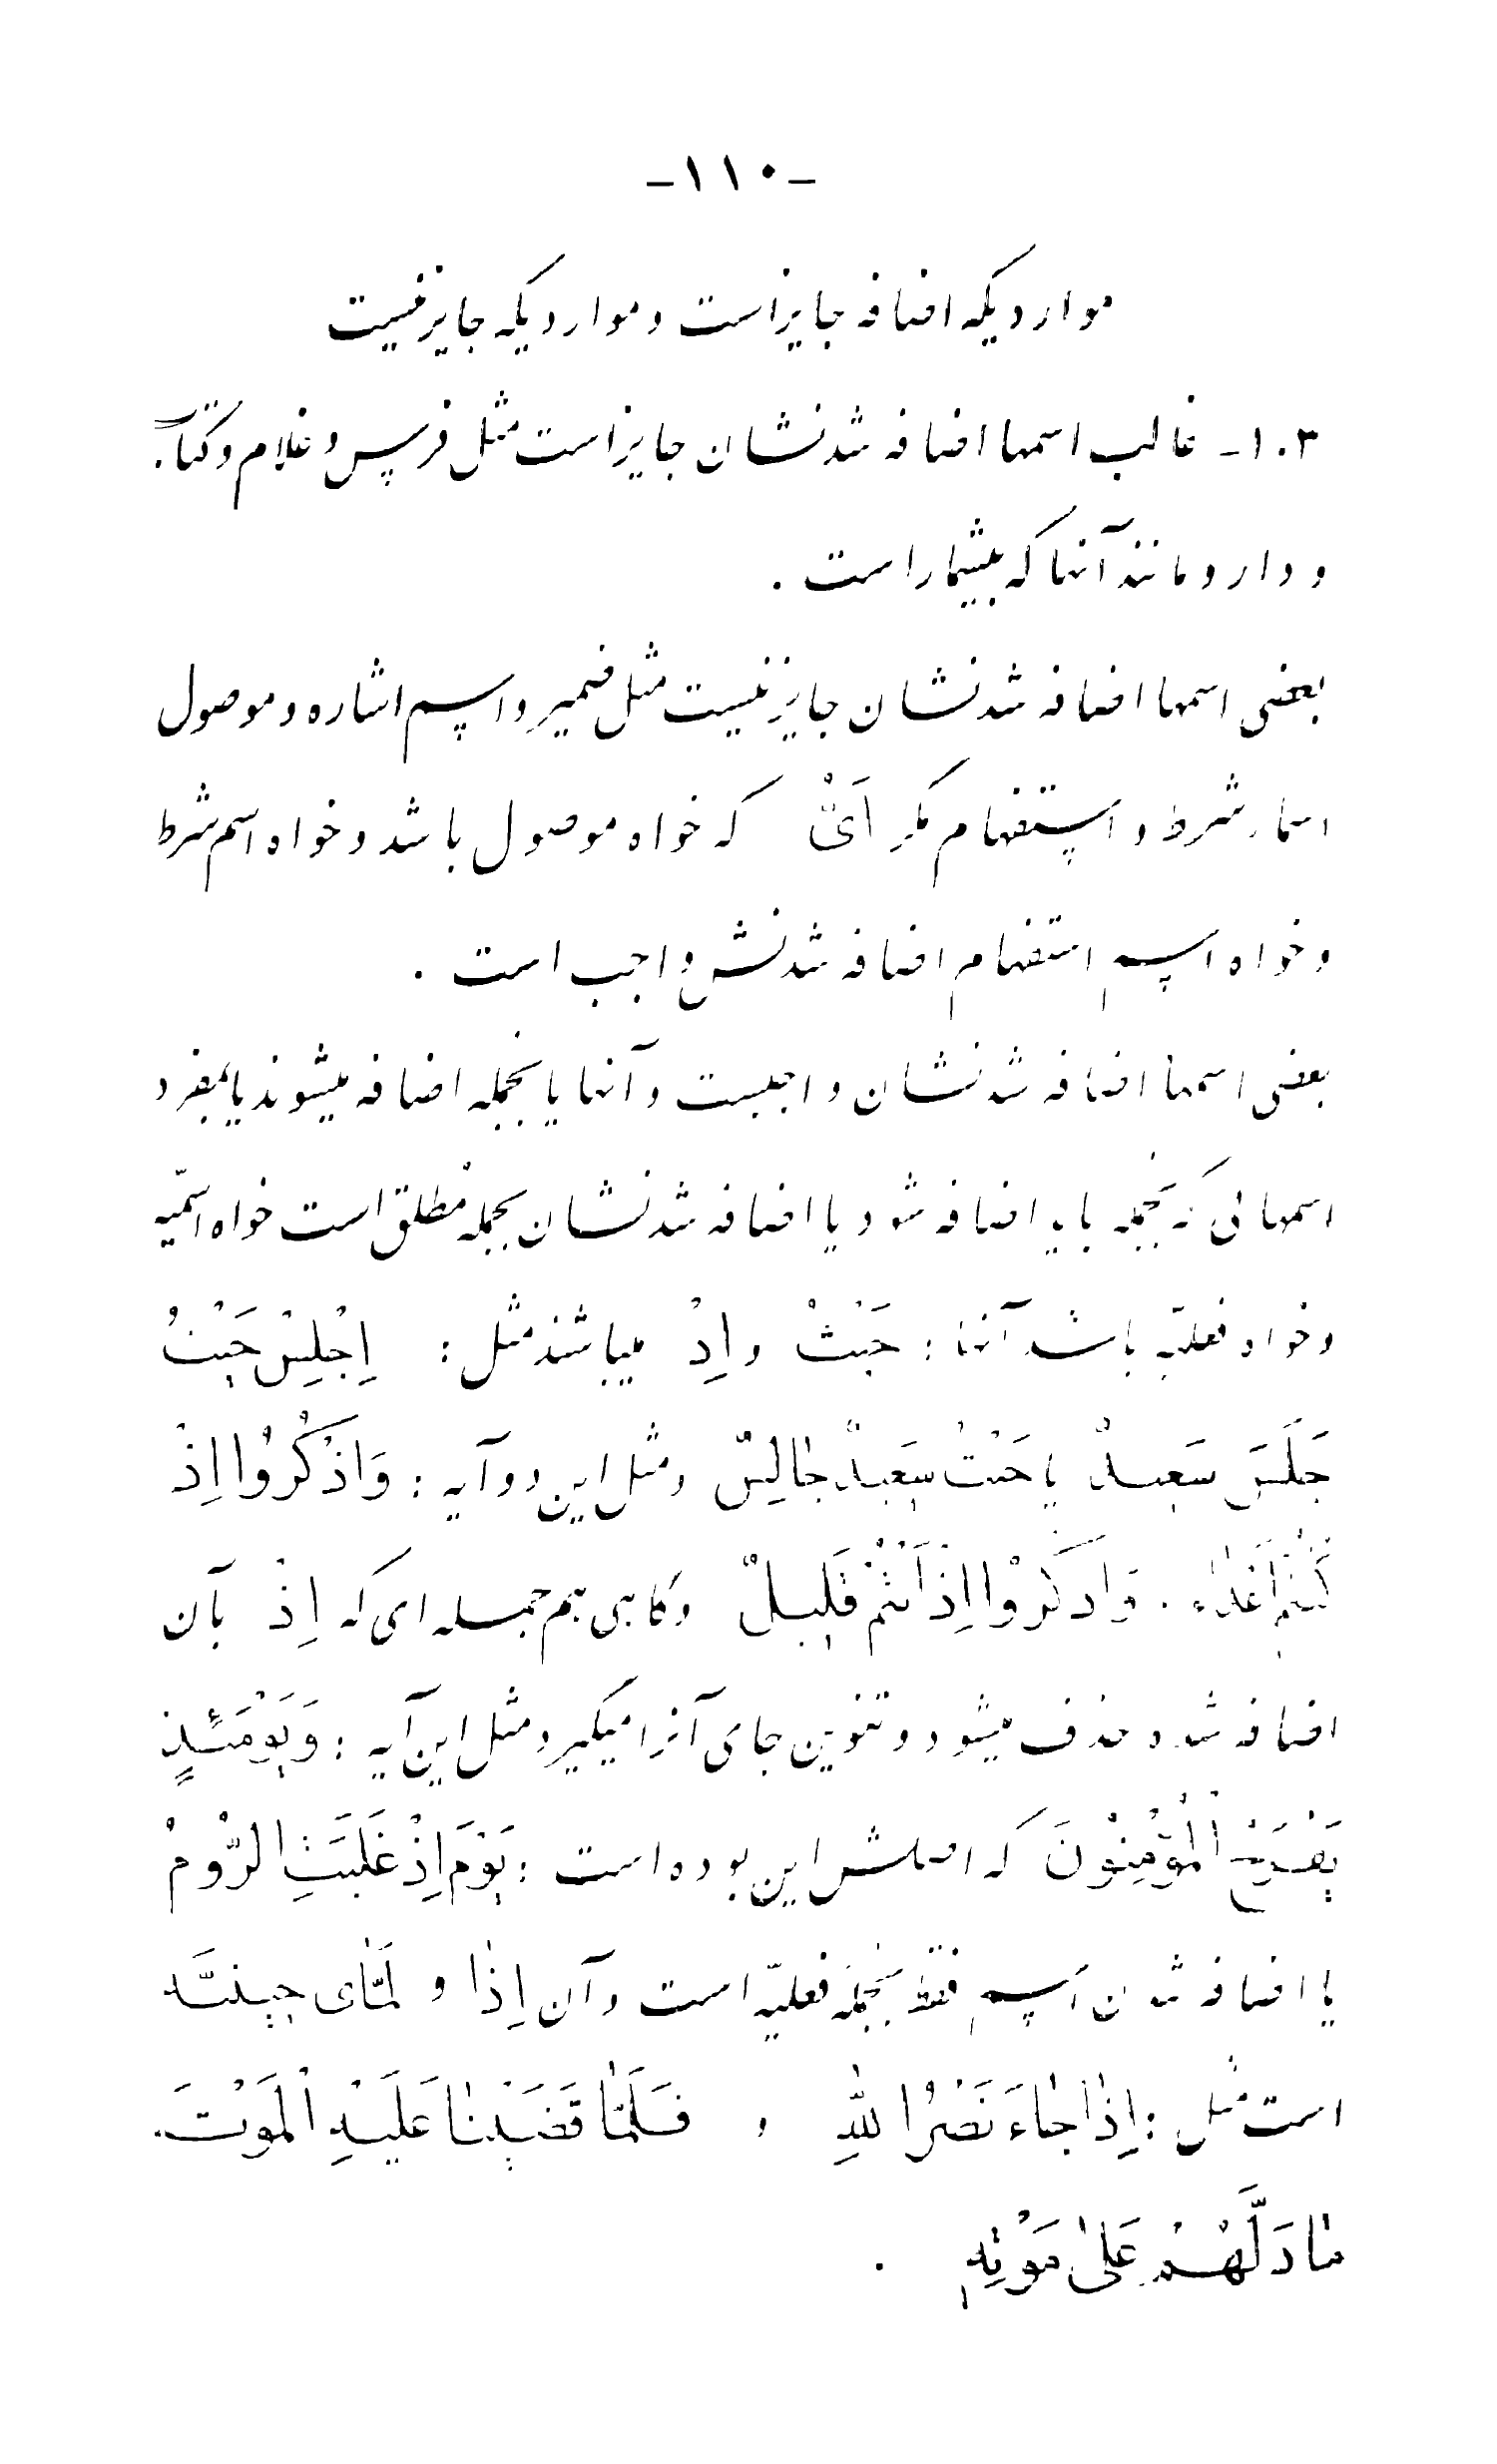 -۱۱۰-
مواردیکه اضافه جایز است و مواردیکه جایز نیست
۱۰۳- غالب اسمها اضافه شدنشان جایز است مثل فرس و غلام و کتاب
و دار و مانند آنها که بیشمار است .
بعضی اسمها اضافه شدنشان جایز نیست مثل ضمیر و اسم اشاره و موصول
اسماء شرط و استفهام مگر اَیّْ که خواه موصول باشد و خواه اسم شرط
و خواه اسم استفهام اضافه شدنش واجب است .
بعضی اسمها اضافه شدنشان واجبست و آنها یا بجمله اضافه میشوند یا بمفرد
اسمهائی که بجمله باید اضافه شود یا اضافه شدنشان بجمله مطلق است خواه اسمّیه
و خواه فعلیّه باشد آنها : حَیْثُ و اِذْ میباشند مثل : اِجْلِسْ حَیْثُ
جَلَسَ سَعیدٌ یا حَیْثُ سَعیدٌ جٰالِسٌ و مثل این دو آیه : وَاذْکُرُوا اِذْ
کُنْتُمْ اَعْدٰاء . وَاذْکُرُوْا اِذْ اَنْتُمْ قَلیلٌ و گاهی هم جمله ای که اِذْ بآن
اضافه شده حذف میشود و تنوین جای آنرا میگیرد مثل این آیه : وَیَوْمَئِذٍ
یَفْرَحُ الْمُؤْمِنُوْنَ که اصلش این بوده است : یَوْمَ اِذْ غَلَبَتِ الرُّومُ
یا اضافه شدن اسم فقط بجمله فعلیّه است و آن اِذٰا و لَمّٰای حینیّه
است مثل : اِذٰا جٰاءَ نَصْرُ اللّٰهِ و فَلَمّٰا قَضَیْنٰا عَلَیْهِ الْمَوْتَ
مٰا دَلَّهُمْ عَلیٰ مَوْتِهِ .